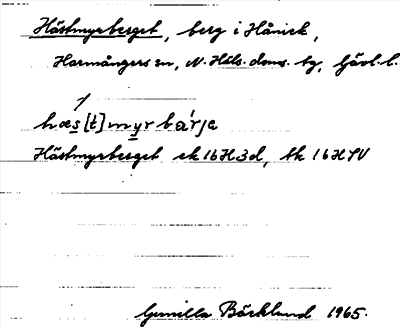 Hästmyrberget, berg i Hånick,
Harmångers sn, N. Häls. doms. tg, Gävl. l.
hæs[t]myrbárja
Hästmyrberget ek 16H3d, tk 16HSV
Gunilla Bäcklund 1965.